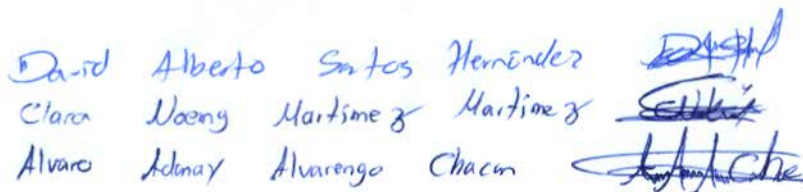 David Alberto Santos Hernández
Clara Noemy Martinez Martinez
Alvaro Adonay Alvarengo Chacon